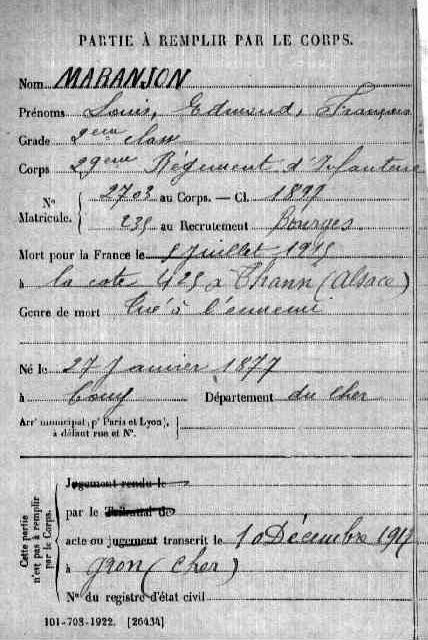 PARTIE À REMPLIR PAR LE CORPS.
Nom MARANJON
Prénoms Louis, Edmond, François
Grade 2eme classe
Corps 29eme Régiment d'Infanterie
N° Matricule. { 2703 au Corps. — Cl. 1897
235 au Recrutement Bourges
Mort pour la France le 5 Juillet 1915
à la cote 425 à Thann (Alsace)
Genre de mort Tué à l'ennemi
Né le 27 Janvier 1877
à Couy Département du Cher
Arrt municipal (pr Paris et Lyon),
à défaut rue et N°.
Cette partie n'est pas à remplir par le Corps.
Jugement rendu le
par le Tribunal de
acte ou jugement transcrit le 10 Décembre
à Gron (Cher)
N° du registre d'état civil
101-708-1922. [26434]